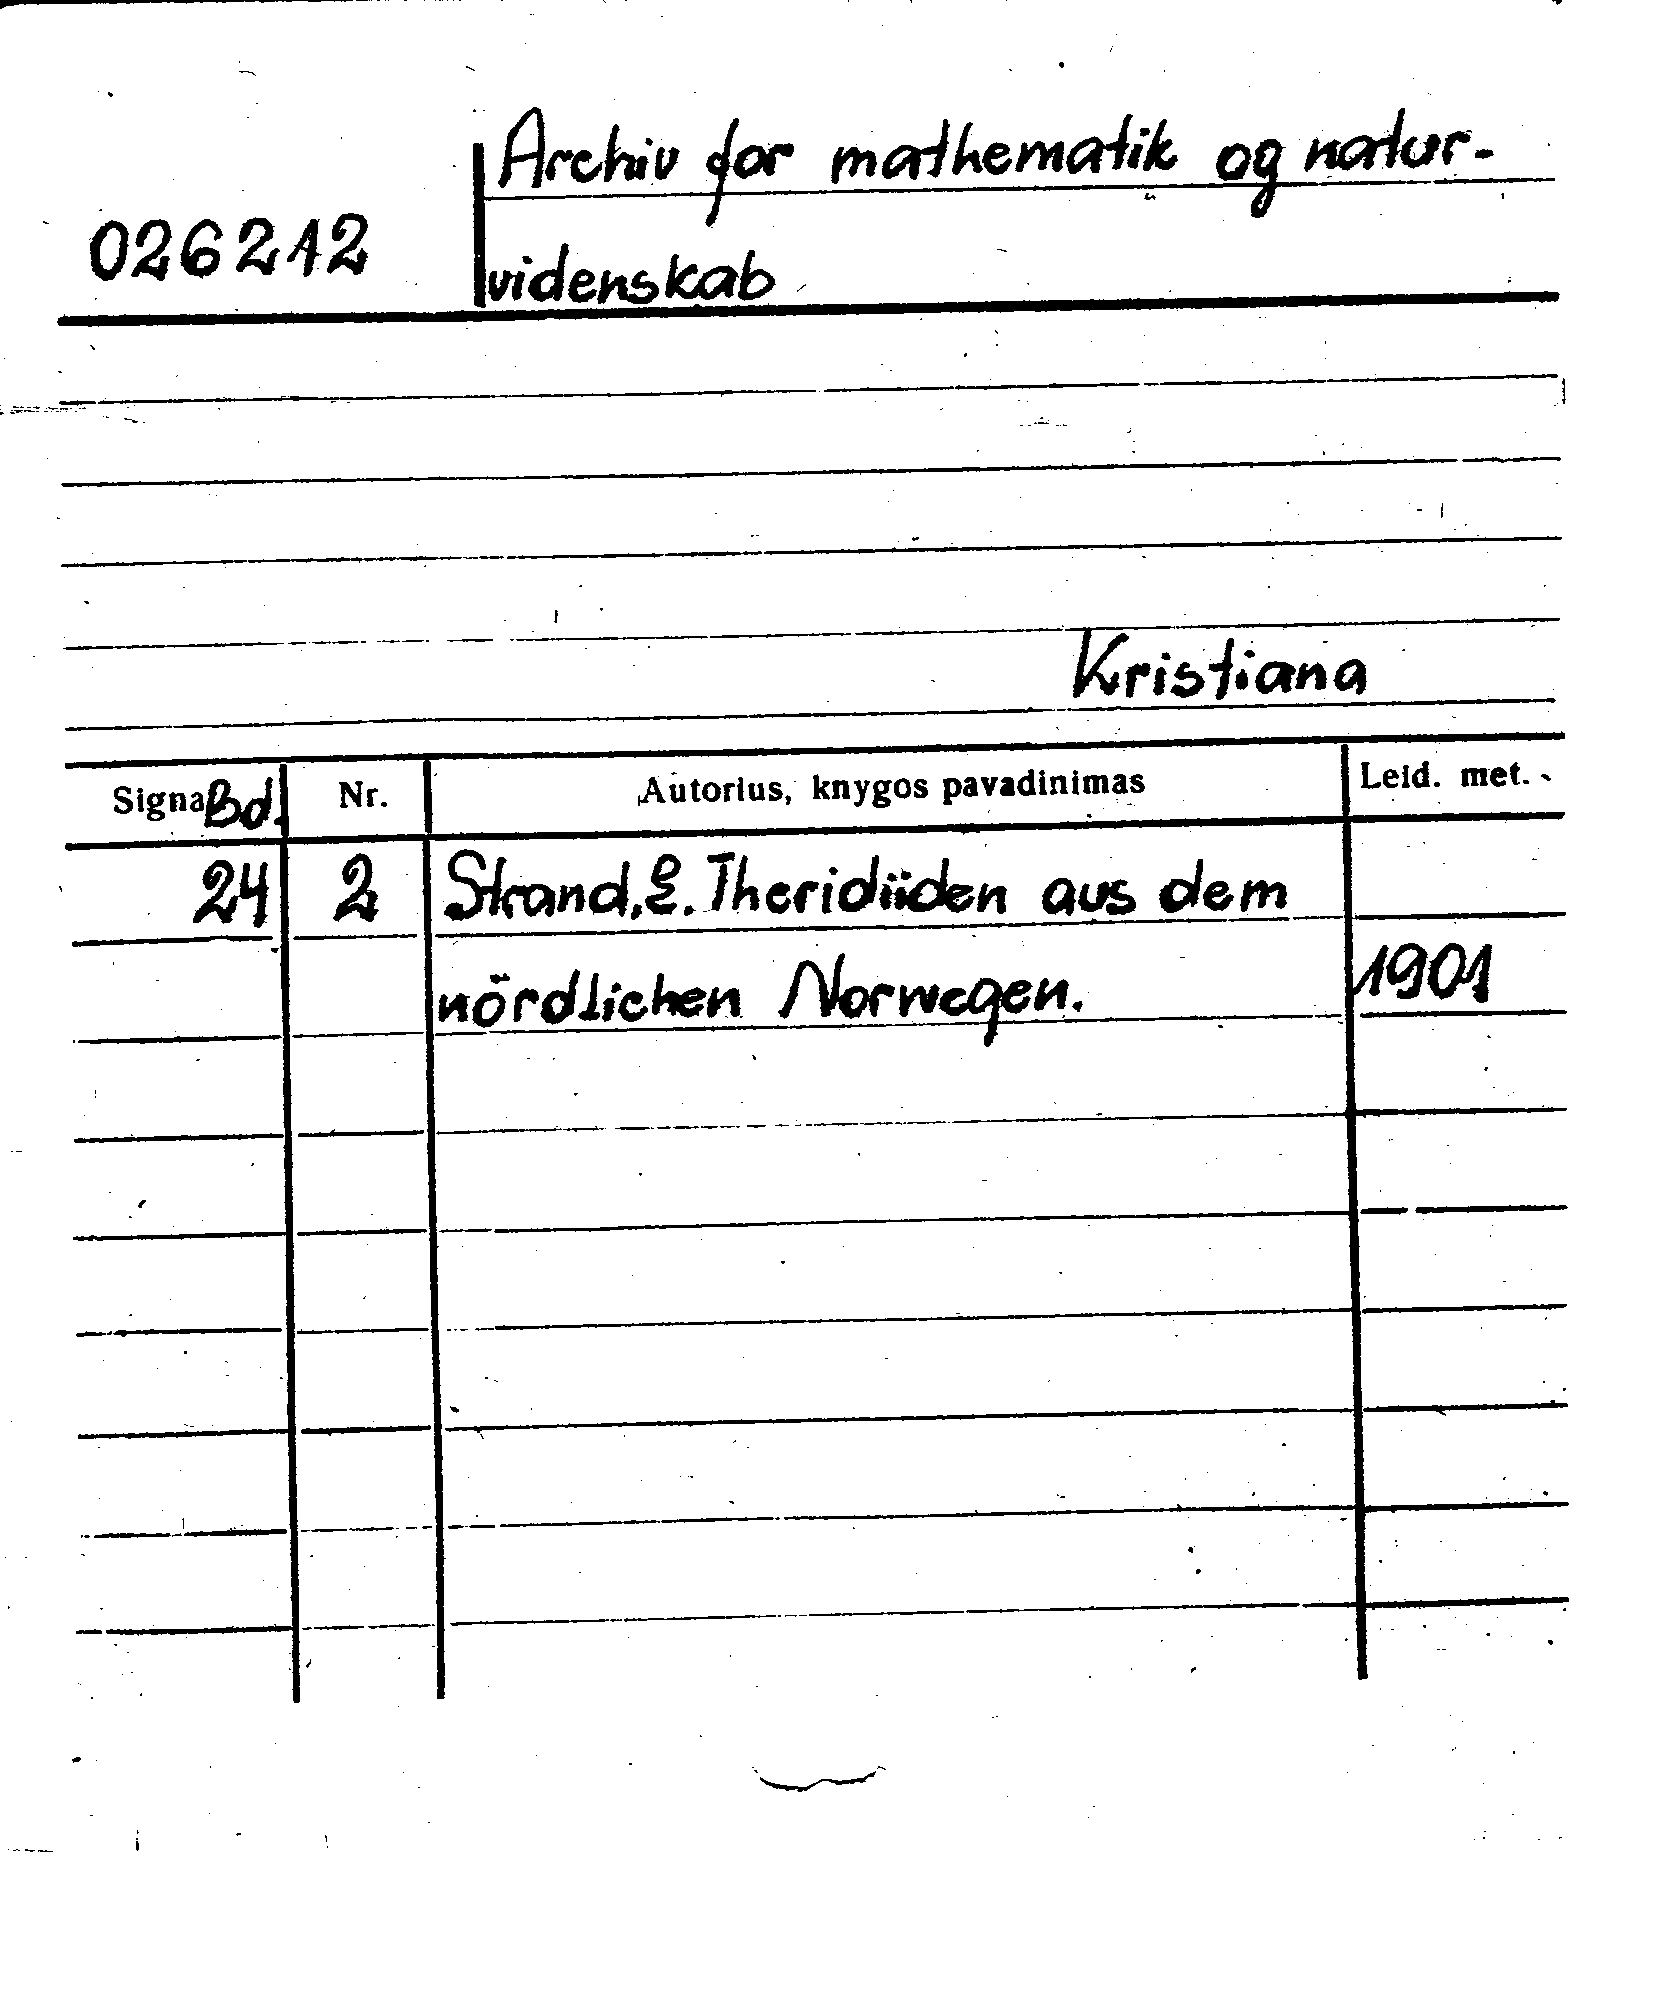 Archiv for mathematik og natur-
026212
videnskab
Kristiana
Signa Bd. Nr. Autorius, knygos pavadinimas Leid. met.
24 2 Strand, E. Theridiiden aus dem
nördlichen Norwegen. 1901